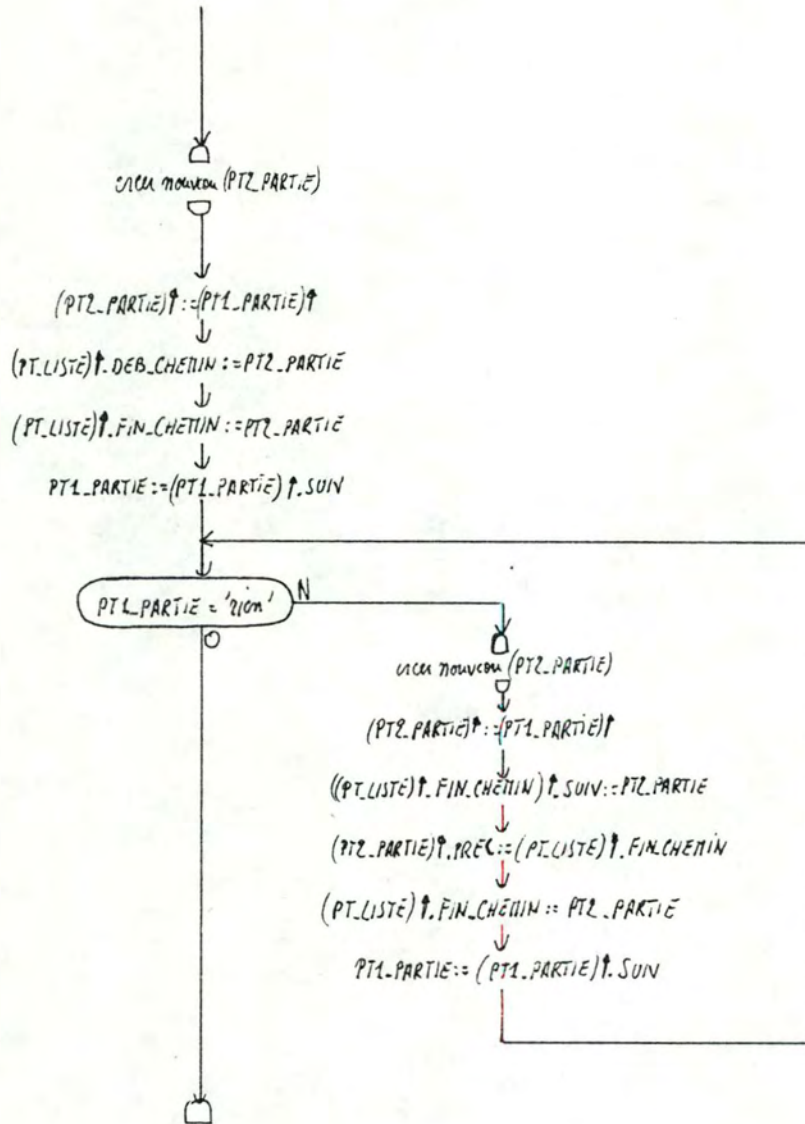 créer nouveau (PT2_PARTIE)
(PT2_PARTIE)↑:=(PT1_PARTIE)↑
(PT_LISTE)↑.DEB_CHEMIN:=PT2_PARTIE
(PT_LISTE)↑.FIN_CHEMIN:=PT2_PARTIE
PT1_PARTIE:=(PT1_PARTIE)↑.SUIV
PT1_PARTIE = 'rien'
N
O
créer nouveau (PT2_PARTIE)
(PT2_PARTIE)↑:=(PT1_PARTIE)↑
((PT_LISTE)↑.FIN_CHEMIN)↑.SUIV:=PT2_PARTIE
(PT2_PARTIE)↑.PREC:=(PT_LISTE)↑.FIN_CHEMIN
(PT_LISTE)↑.FIN_CHEMIN:=PT2_PARTIE
PT1_PARTIE:=(PT1_PARTIE)↑.SUIV